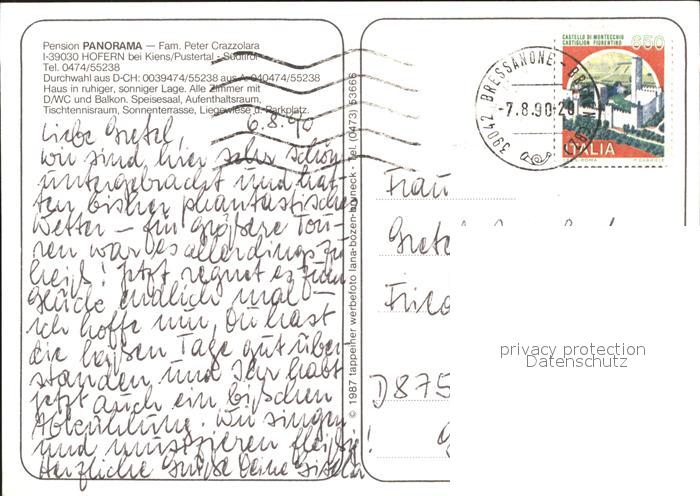 Pension PANORAMA — Fam. Peter Crazzolara
I-39030 HOFERN bei Kiens/Pustertal - Südtirol
Tel. 0474/55238
Durchwahl aus D-CH: 0039474/55238 aus A: 040474/55238
Haus in ruhiger, sonniger Lage. Alle Zimmer mit
D/WC und Balkon. Speisesaal, Aufenthaltsraum,
Tischtennisraum, Sonnenterrasse, Liegewiese u. Parkplatz.
6.8.90
Liebe Gretel,
wir sind hier sehr schön
untergebracht und hat-
ten bisher phantastisches
Wetter – für größere Tou-
ren war es allerdings zu
heiß! Jetzt regnet es zum
Glück endlich mal –
ich hoffe nur, Du hast
die heißen Tage gut über-
standen und Ihr habt
jetzt auch ein bißchen
Abkühlung. Wir singen
und musizieren fleißig!
Herzliche Grüße Deine Gisela
© 1987 tappeiner werbefoto lana-bozen (0473) 53666
CASTELLO DI MONTECCHIO
CASTIGLION FIORENTINO
650
ITALIA
39042 BRESSANONE
-7.8.90-20
Frau
Gretel
D 875
privacy protection
Datenschutz